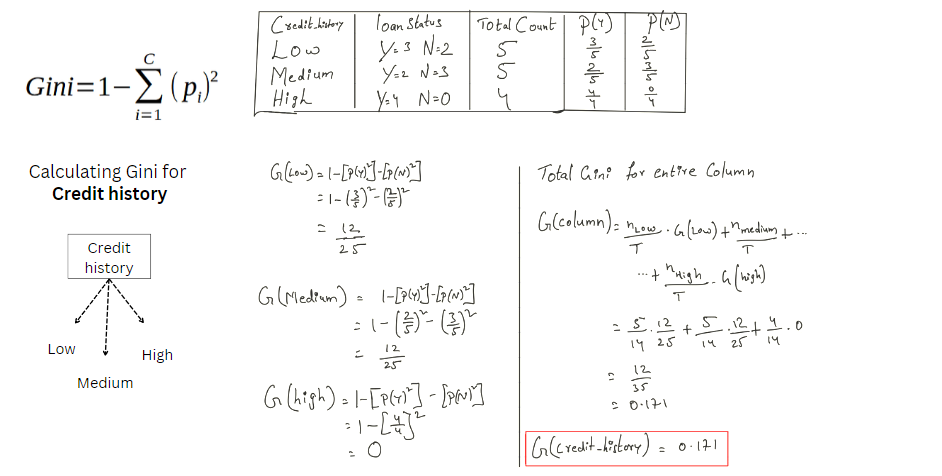 Gini=1-∑(p_i)²
C
i=1
Credit_history | loan Status | Total Count | P(Y) | P(N)
Low | Y=3 N=2 | 5 | 3/5 | 2/5
Medium | Y=2 N=3 | 5 | 2/5 | 3/5
High | Y=4 N=0 | 4 | 4/4 | 0/4
Calculating Gini for
Credit history
Credit
history
Low
High
Medium
G(Low) = 1-[P(Y)²]-[P(N)²]
= 1-(3/5)²-(2/5)²
= 12/25
G(Medium) = 1-[P(Y)²]-[P(N)²]
= 1-(2/5)²-(3/5)²
= 12/25
G(high) = 1-[P(Y)²]-[P(N)²]
= 1-[4/4]²
= 0
Total Gini for entire Column
G(column) = n_Low/T . G(Low) + n_medium/T + ...
... + n_High/T . G(high)
= 5/14 . 12/25 + 5/14 . 12/25 + 4/14 . 0
= 12/35
= 0.171
G(Credit_history) = 0.171